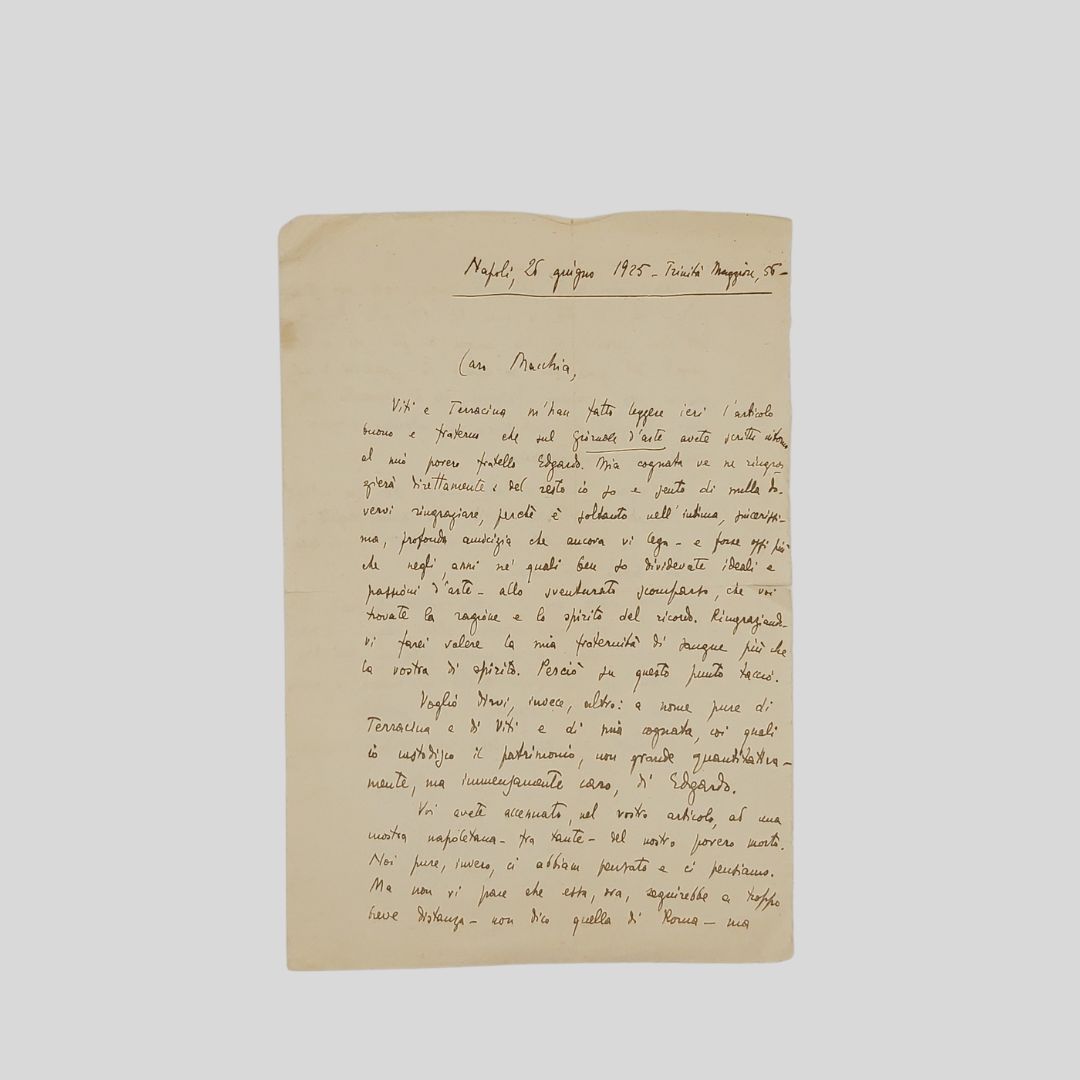 Napoli, 26 giugno 1925 - Trinità Maggiore, 56 -
Caro Macchia,
Viti e Terracina m'han fatto leggere ieri l'articolo
buono e fraterno che sul Giornale d'arte avete scritto intorno
al mio povero fratello Edgardo. Mia cognata ve ne ringra-
zierà direttamente: del resto io so e sento di nulla do-
vervi ringraziare, perchè è soltanto nell'intima, sincerissi-
ma, profonda amicizia che ancora vi lega - e forse oggi più
che negli anni ne' quali ben so dividevate ideali e
passioni d'arte - allo sventurato scomparso, che voi
trovate la ragione e lo spirito del ricordo. Ringraziando-
vi farei valere la mia fraternità di sangue più che
la vostra di spirito. Perciò su questo punto taccio.
Voglio dirvi, invece, altro: a nome pure di
Terracina e di Viti e di mia cognata, coi quali
io custodisco il patrimonio, non grande quantitativa-
mente, ma immensamente caro, di Edgardo.
Voi avete accennato, nel vostro articolo, ad una
mostra napoletana - tra tante - del nostro povero morto.
Noi pure, invero, ci abbiam pensato e ci pensiamo.
Ma non vi pare che essa, ora, seguirebbe a troppo
breve distanza - non dico quella di Roma - ma